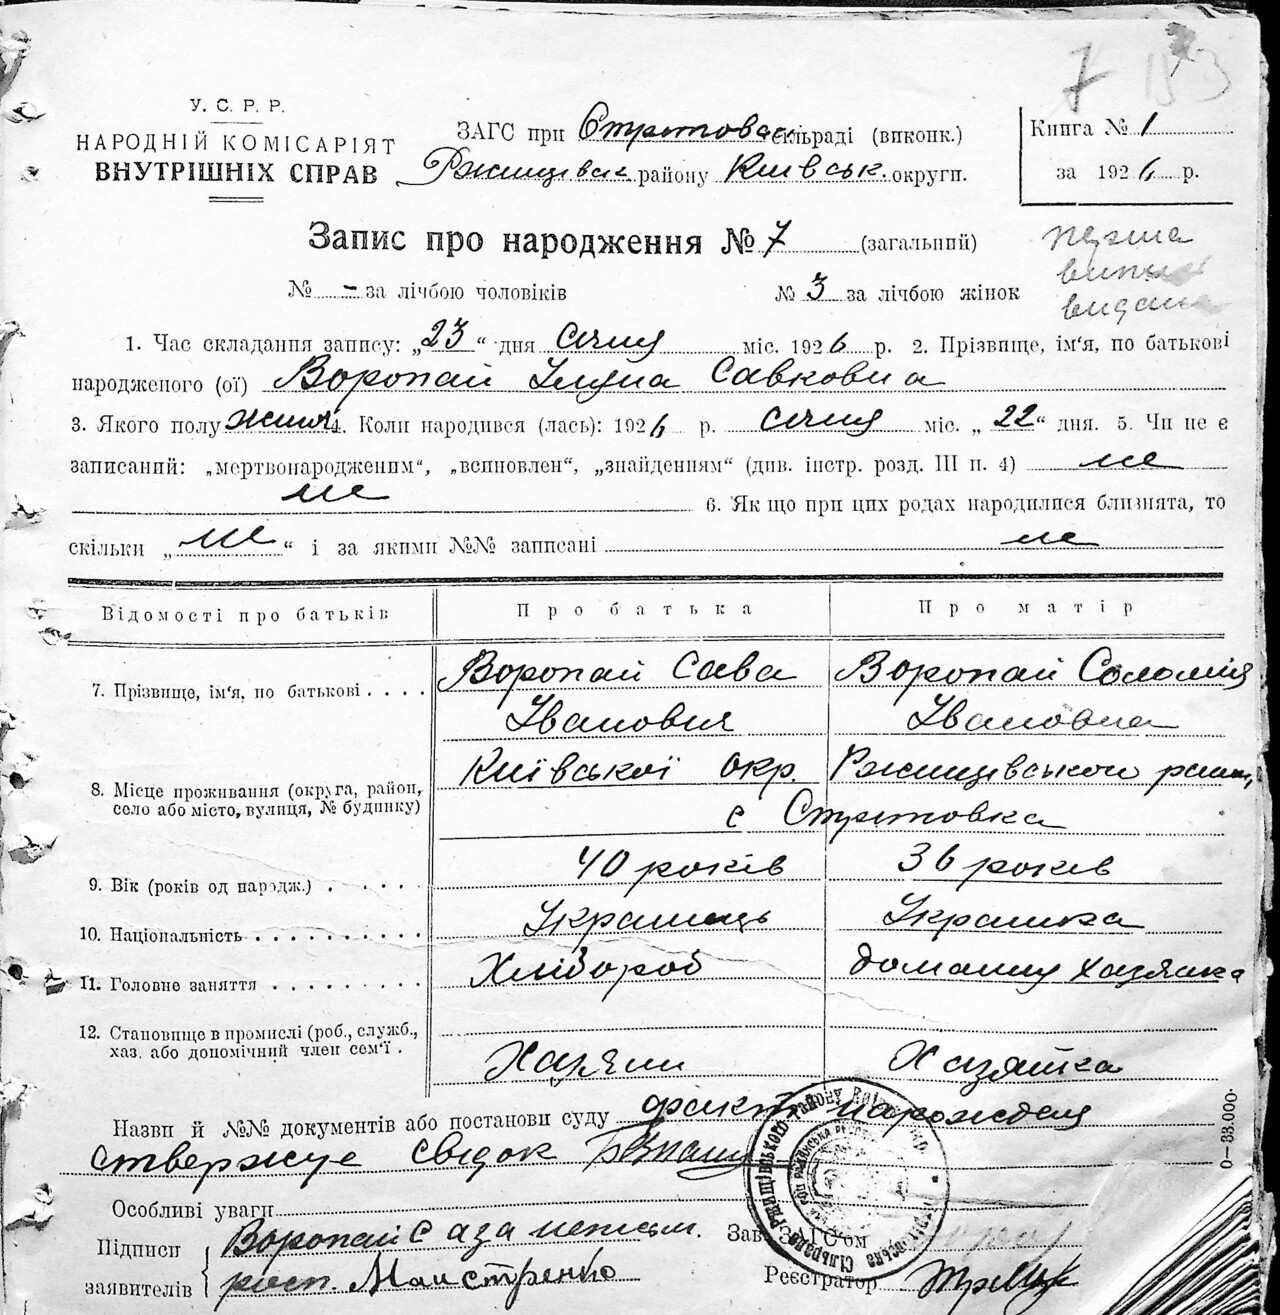 7 153
У. С. Р. Р.
НАРОДНІЙ КОМІСАРІЯТ
ВНУТРІШНІХ СПРАВ
ЗАГС при Стритовск сільраді (виконк.)
Ржищівск району Київськ. округи.
Книга № 1
за 1926 р.
Запис про народження № 7 (загальний)
перша
випис
видана
№ - за лічбою чоловіків № 3 за лічбою жінок
1. Час складання запису: „23“ дня січня міс. 1926 р. 2. Прізвище, ім'я, по батькові
народженого (ої) Воропай Савковна
3. Якого полу жіноч 4. Коли народився (лась): 1926 р. січня міс. „22“ дня. 5. Чи не є
записаний: „мертвонародженим“, „всиновлен“, „знайденням“ (див. інстр. розд. III п. 4) не
не 6. Як що при цих родах народилися близнята, то
скільки „не“ і за якими №№ записані не
Відомості про батьків Про батька Про матір
7. Прізвище, ім'я, по батькові Воропай Сава Воропай Соломія
Іванович Івановна
8. Місце проживання (округа, район, село або місто, вулиця, № будинку) Київської окр. Ржищівського район,
с Стритовка
9. Вік (років од народж.) 40 років 36 років
10. Національність Українець Українка
11. Головне заняття Хлібороб домашня хазяйка
12. Становище в промислі (роб., служб., хаз. або допомічний член сем'ї . Хазяїн Хазяйка
Назви й №№ документів або постанови суду факт народження
ствержує свідок
Особливі уваги
Підписи заявителів Воропай Сава неписм.
расп. Майстренко
Зав. ЗАГС'ом
Реєстратор
0—33.000·